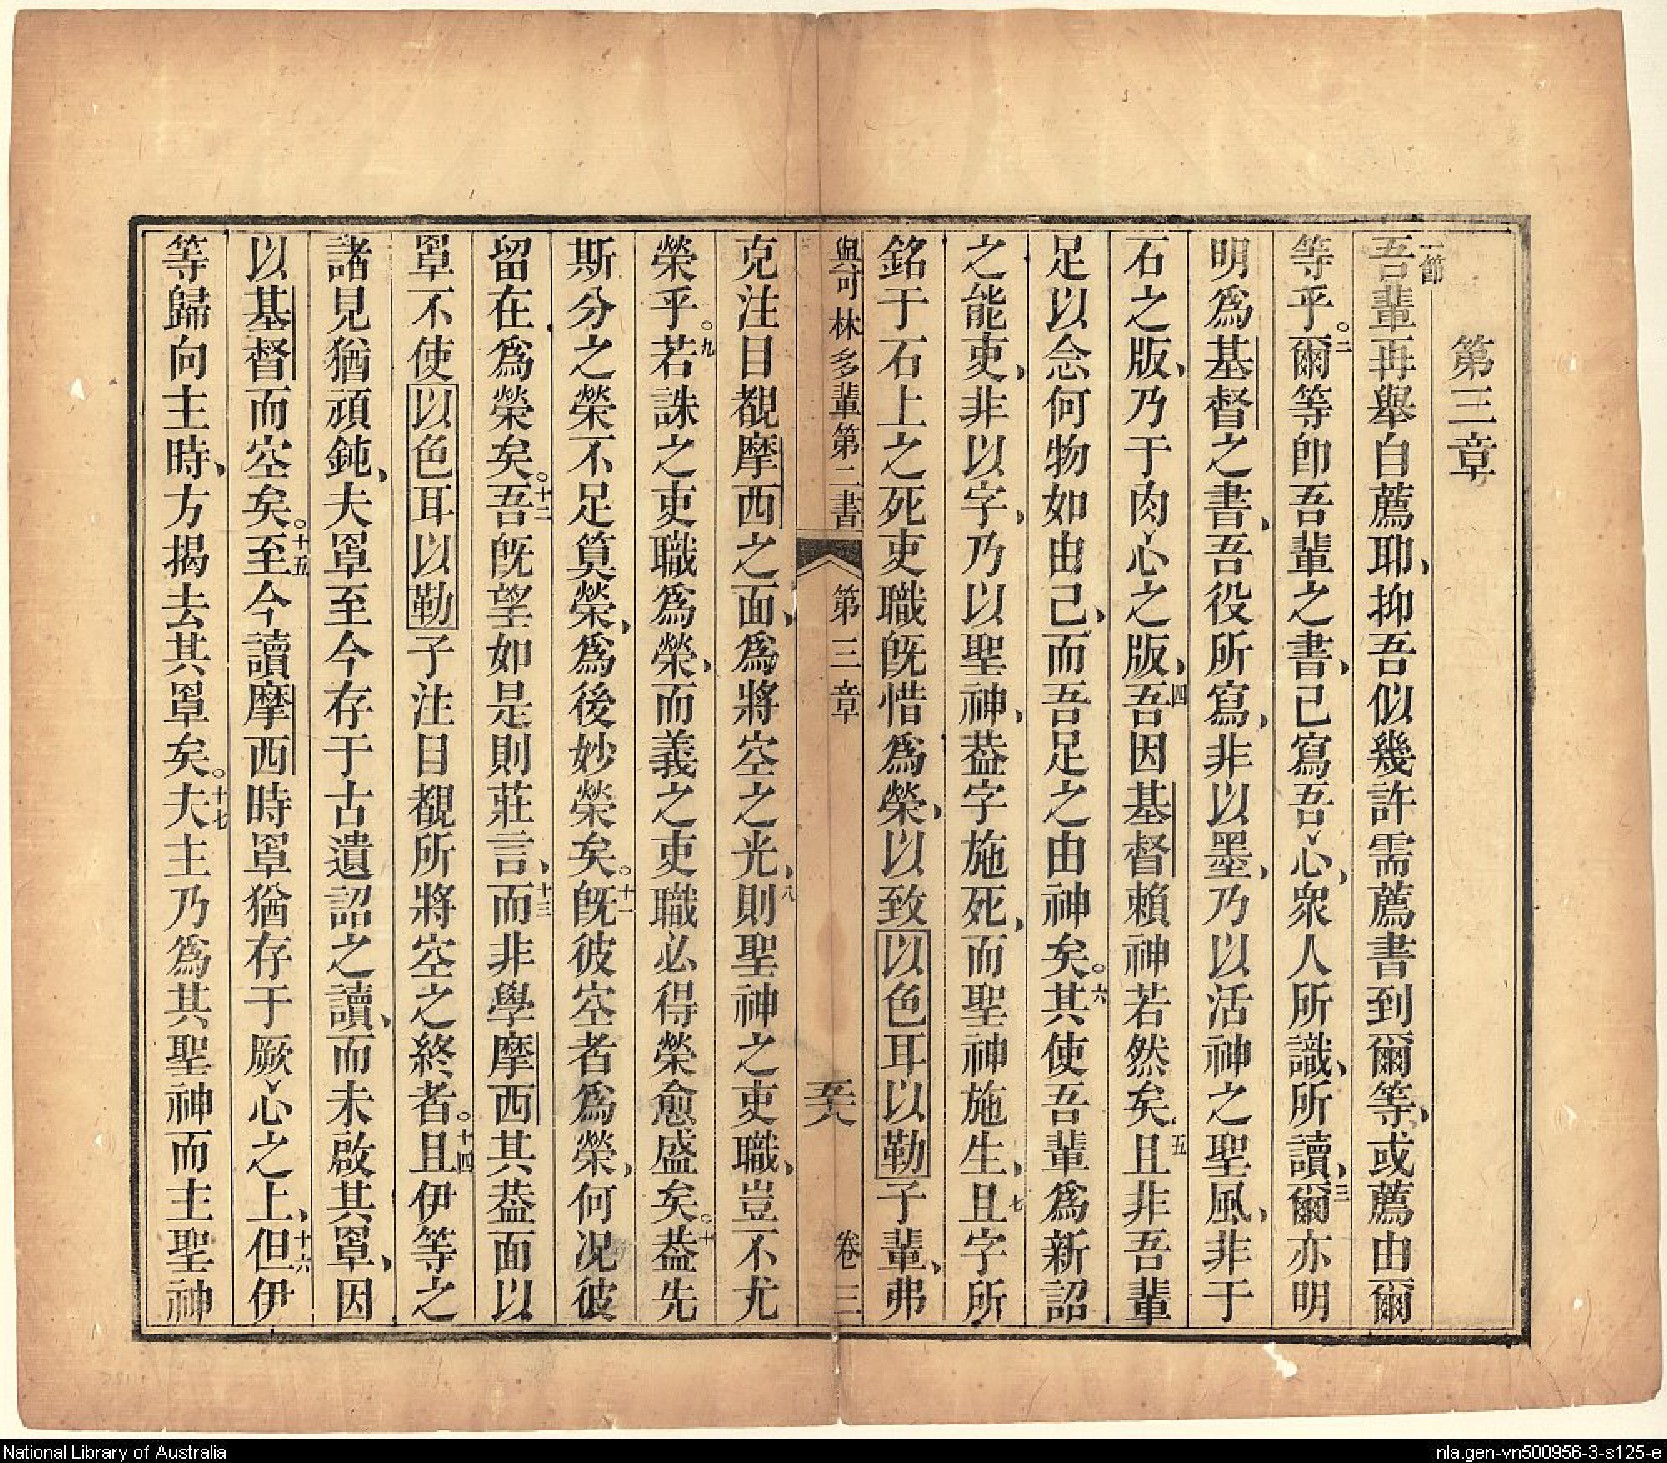 第三章
一節
吾輩再舉自薦耶、抑吾似幾許需薦書到爾等、或薦由爾
等乎。二爾等卽吾輩之書、已寫吾心、衆人所識、所讀、三爾亦明
明爲基督之書、吾役所寫、非以墨、乃以活神之聖風、非于
石之版、乃于肉心之版、四吾因基督賴神若然矣。五且非吾輩
足以念何物如由己、而吾足之由神矣。六其使吾輩爲新詔
之能吏、非以字、乃以聖神、葢字施死、而聖神施生、七且字所
銘于石上之死吏職旣惜爲榮、以致以色耳以勒子輩、弗
與可林多輩第二書 第三章 卷三
克注目覩摩西之面、爲將空之光、八則聖神之吏職、豈不尤
榮乎。九若誅之吏職爲榮、而義之吏職必得榮愈盛矣。十葢先
斯分之榮不足算榮、爲後妙榮矣。十一旣彼空者爲榮、何况彼
留在爲榮矣。十二吾旣望如是則莊言、十三而非學摩西其葢面以
罩不使以色耳以勒子注目覩所將空之終者。十四且伊等之
諸見猶頑鈍、夫罩至今存于古遺詔之讀、而未啟其罩、因
以基督而空矣。十五至今讀摩西時罩猶存于厥心之上、十六但伊
等歸向主時、方揭去其罩矣。十七夫主乃爲其聖神而主聖神
National Library of Australia
nla.gen-vn500956-3-s125-e